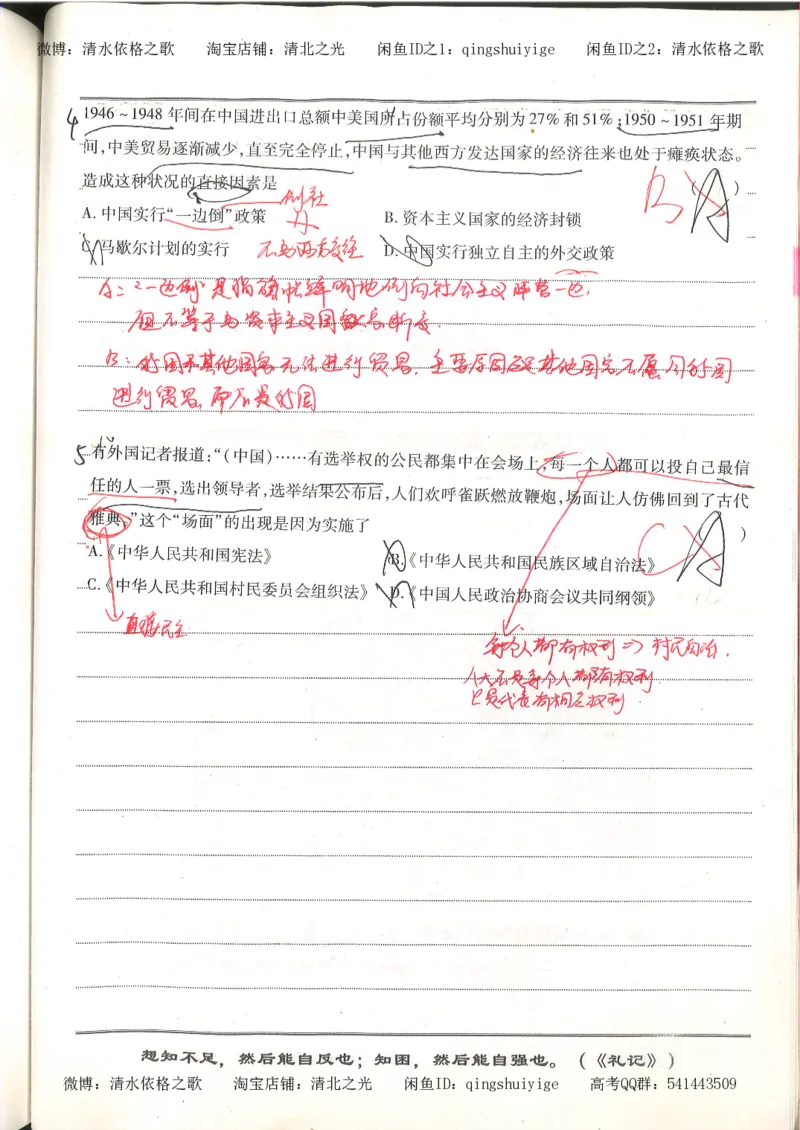 微博：清水依格之歌 淘宝店铺：清北之光 闲鱼ID之1：qingshuiyige 闲鱼ID之2：清水依格之歌
4 1946～1948 年间在中国进出口总额中美国所占份额平均分别为 27% 和 51%；1950～1951 年期
间，中美贸易逐渐减少，直至完全停止，中国与其他西方发达国家的经济往来也处于瘫痪状态。
造成这种状况的直接因素是 ( A ) B
倒社
A. 中国实行“一边倒”政策 B. 资本主义国家的经济封锁
C. 马歇尔计划的实行 D. 中国实行独立自主的外交政策
A：“一边倒”是指旗帜鲜明地倒向社会主义阵营一边.
但不等于与资本主义国家断交.
B：中国和其他国家无法进行贸易，主要原因是其他国家不愿同中国
进行贸易，而不是中国
5 有外国记者报道：“(中国)……有选举权的公民都集中在会场上，每一个人都可以投自己最信
任的人一票，选出领导者，选举结果公布后，人们欢呼雀跃燃放鞭炮，场面让人仿佛回到了古代
雅典。”这个“场面”的出现是因为实施了 C ( A )
A.《中华人民共和国宪法》 B.《中华人民共和国民族区域自治法》
C.《中华人民共和国村民委员会组织法》 D.《中国人民政治协商会议共同纲领》
直接民主
每个人都有权利⇒村民自治.
人大不是每个人都有权利
只是代表有相应权利
想知不足，然后能自反也；知困，然后能自强也。（《礼记》）
微博：清水依格之歌 淘宝店铺：清北之光 闲鱼ID：qingshuiyige 高考QQ群：541443509